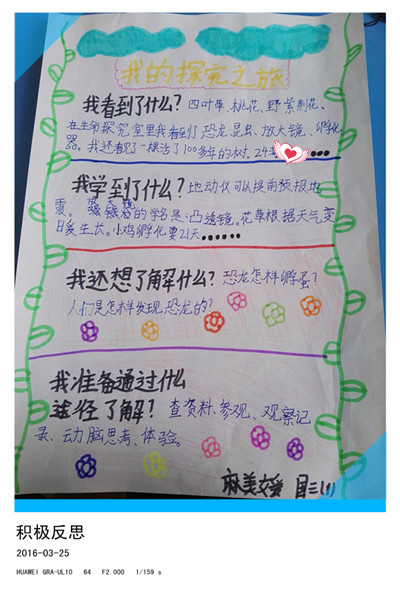 我的探究之旅
我看到了什么？四叶草、桃花、野紫荆花、
在生命探究室里我看到了恐龙、昆虫、放大镜、孵化
器。我还看了一棵活了100多年的树。
我学到了什么？地动仪可以提前预报地
震。的学名是:凸透镜。花草根据天气变
暖生长。小鸡孵化要21天●●●●●●
我还想了解什么？恐龙怎样孵蛋？
人们是怎样发现恐龙的？
我准备通过什么
途径了解？查资料、参观、观察记
录、动脑思考、体验。
麻美媛
积极反思
2016-03-25
HUAWEI GRA-UL10 64 F2.000 1/159 s